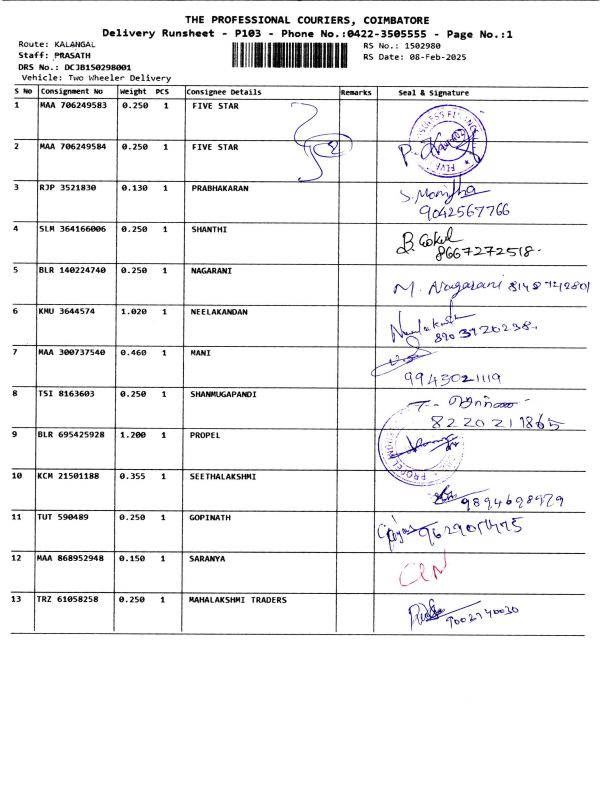 THE PROFESSIONAL COURIERS, COIMBATORE
Delivery Runsheet - P103 - Phone No.:0422-3505555 - Page No.:1
Route: KALANGAL
RS No.: 1502980
Staff: PRASATH
RS Date: 08-Feb-2025
DRS No.: DCJB1S0298001
Vehicle: Two Wheeler Delivery
S No Consignment No Weight PCS Consignee Details Remarks Seal & Signature
1 MAA 706249583 0.250 1 FIVE STAR
2 MAA 706249584 0.250 1 FIVE STAR
3 RJP 3521830 0.130 1 PRABHAKARAN
9042567766
4 SLM 364166006 0.250 1 SHANTHI B. Gokul
8667272518.
5 BLR 140224740 0.250 1 NAGARANI M. Nagarani
6 KMU 3644574 1.020 1 NEELAKANDAN
7 MAA 300737540 0.460 1 MANI
9943021119
8 TSI 8163603 0.250 1 SHANMUGAPANDI
8220211865
9 BLR 695425928 1.200 1 PROPEL
10 KCM 21501188 0.355 1 SEETHALAKSHMI
11 TUT 590489 0.250 1 GOPINATH
12 MAA 868952948 0.150 1 SARANYA
13 TRZ 61058258 0.250 1 MAHALAKSHMI TRADERS